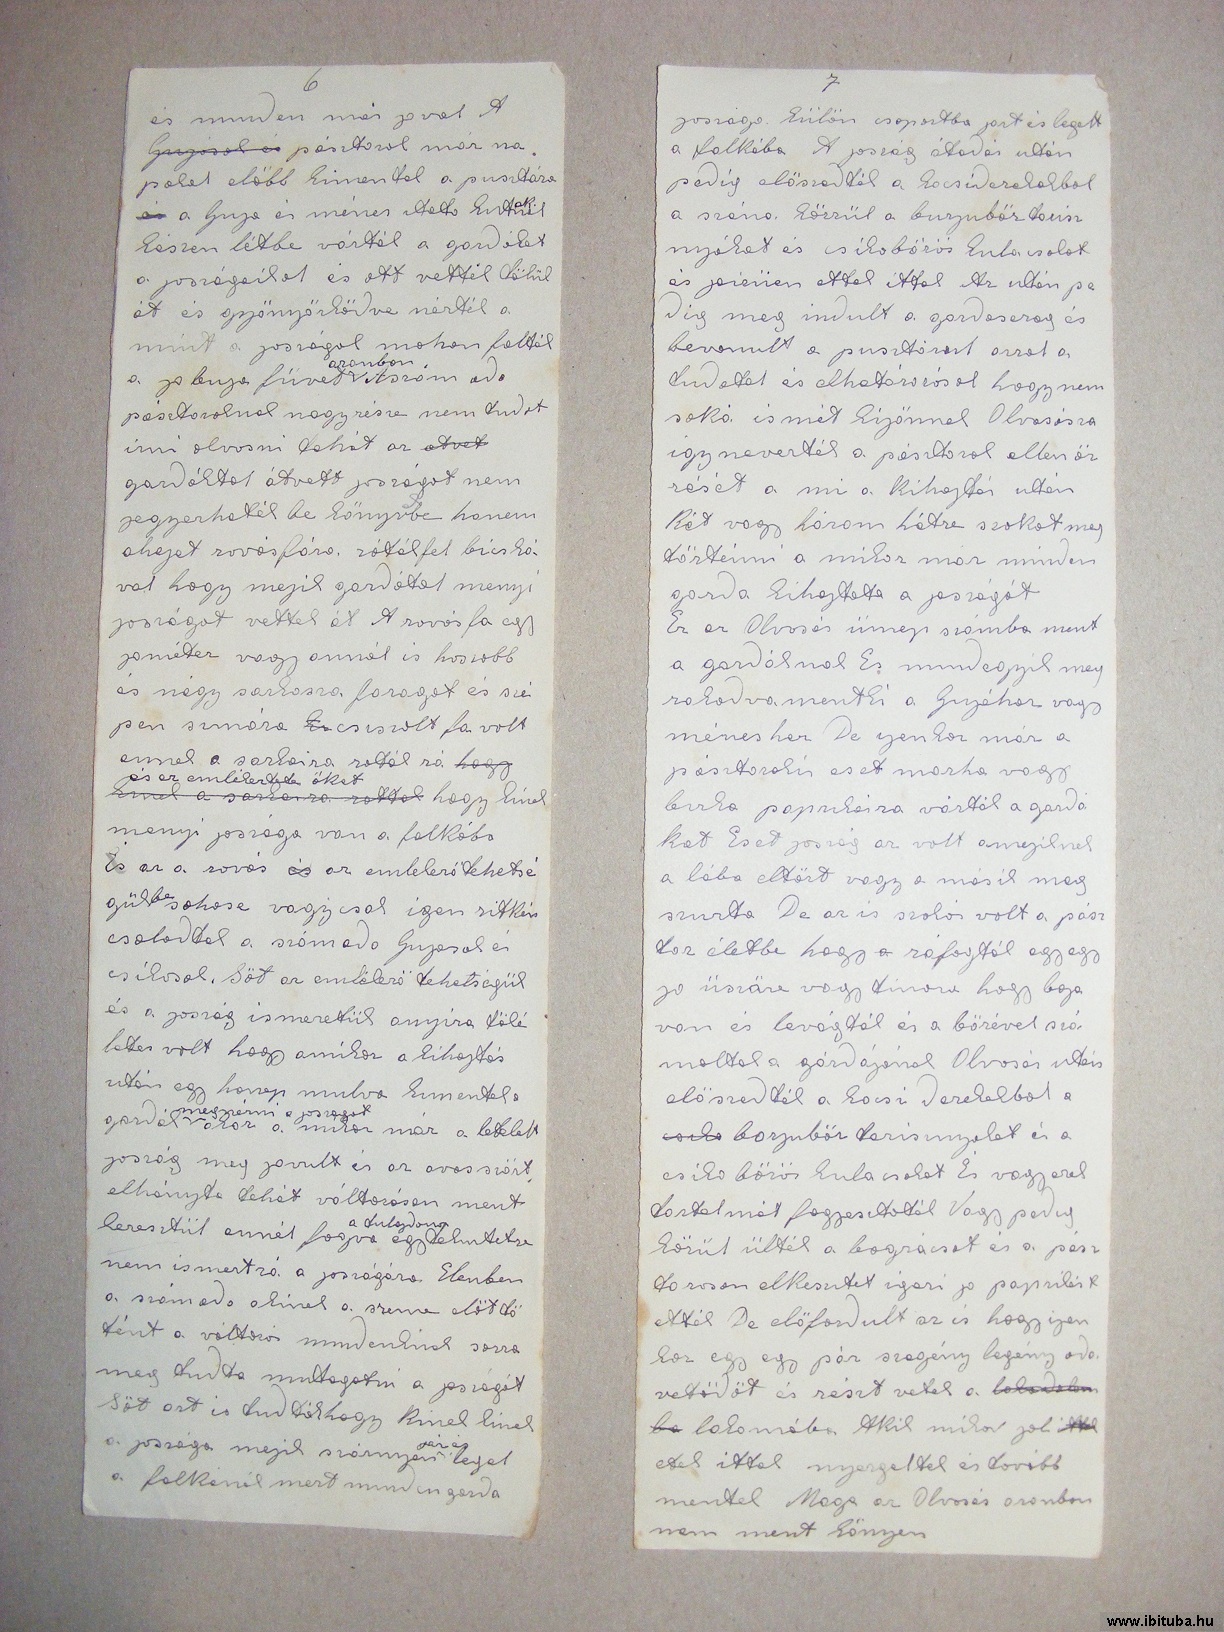 6
és minden más jóval A
Gujások és pásztorok már na
pokal előbb kimentek a pusztára
és a Guja és ménes itato kutnál
készen létbe várták a gazdákat
a joszágaikal és ott vették tőlük
át és gyönyörködve nézték a
mint a joszágok mohon falták
a jo buja füvet azonban A szám ado
pásztoroknak nagyrésze nem tudot
irni olvasni tehát az átvet
gazdáktol átvett joszágot nem
jegyezhaték be könyvbe hanem
ahejet rovásfára róták fel bicská
val hogy mejik gazdátol menyi
joszágot vettek át A rovásfa egy
jo méter vagy annál is hoszabb
és négy sarkosra faragot és szé
pen simára csiszolt fa volt
ennek a sarkaira rotak rá hogy
és az emlékezteto őket
kinek a sarkaira rottak hogy kinek
menyi joszága van a falkába
És az a rovás és az emlékezőtehetsé
gükbe sohase vagy csak igen ritkán
csalodtak a számado Gujások és
csikosok. Sőt az emlékező tehetségük
és a joszág ismeretük anyira töké
letes volt hogy amikor a kihajtás
után egy honap mulva kimentek a
gazdák megnézni a joszágot akor a mikor már a letelelt
joszág meg javult és az avas szőrt
elhányta tehát változáson ment
keresztül annál fogva a tulajdonos egy tekintetre
nem ismert rá a joszágára. Elenben
a számado akinek a szeme előt tö
tént a változás mindenkinek sorra
meg tudta mutagatni a joszágát
Sőt azt is tudták hogy kinek kinek
a joszága mejik szárnyon jár és legel
a falkánál mert minden gazda
7
joszága. Külön csoportba járt és legelt
a falkába A joszág átadás után
pedig előszedték a kocsiderekakbol
a széna. Közzül a borjubőr tarisz
nyákat és csikobőrös kulacsokat
és jóízüen ettek ittak Az után pe
dig meg indult a gazdasereg és
bevonult a pusztárol azzal a
tudatal és elhatározásal hogy nem
soká ismét kijönnek Olvasásra
így nevezték a pásztorok ellenőr
zését a mi a kihajtás után
Két vagy három hétre szokot meg
történni a mikor már minden
gazda kihajtota a joszágát
Ez az Olvasás ünnep számba ment
a gazdáknál És mindegyik meg
rakodva ment ki a Gujához vagy
méneshez De ijenkor már a
pásztorok is eset marha vagy
birka paprikásra várták a gazdá
kat Eset joszág az volt amejiknek
a lába eltört vagy a másik meg
szurta De az is szokás volt a pász
tor életbe hogy a ráfogták egy egy
jo üszőre vagy tinora hogy baja
van és levágták és a bőrével szá
moltak a gazdájának Olvasás után
előszedték a kocsi derekakbol a
borjubőr tarisznyakat és a
csiko bőrös kulacsokat És vagy ezek
tartalmát fogyasztották Vagy pedig
körül ülték a bográcsot és a pász
torosan elkészitet igazi jo paprikást
ették De előfordult az is hogy ijen
kor egy egy pár szegény legény oda
vetődöt és részt vetek a lakodalom
ba lakomába Akik mikor jol
etek ittak nyergeltek és tovább
mentek Maga az Olvasás azonban
nem ment könyen
www.ibituba.hu